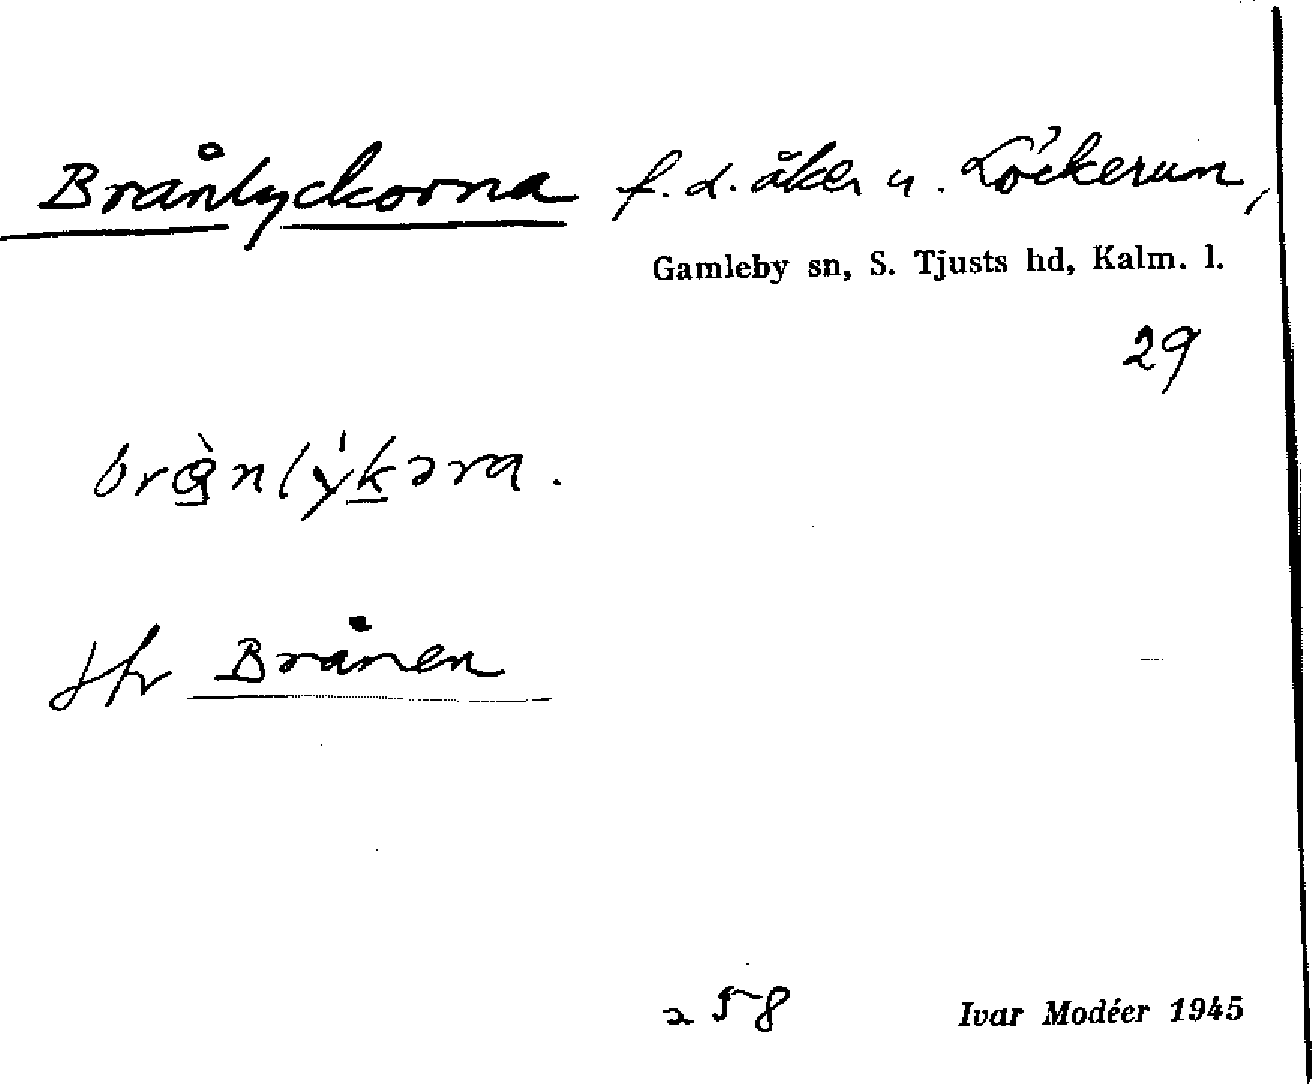 Brånlyckorna f.d. åker u. Löckerum,
Gamleby sn, S. Tjusts hd, Kalm. l.
29
brå̀nlýkəra.
Jfr Brånen
a 58 Ivar Modéer 1945